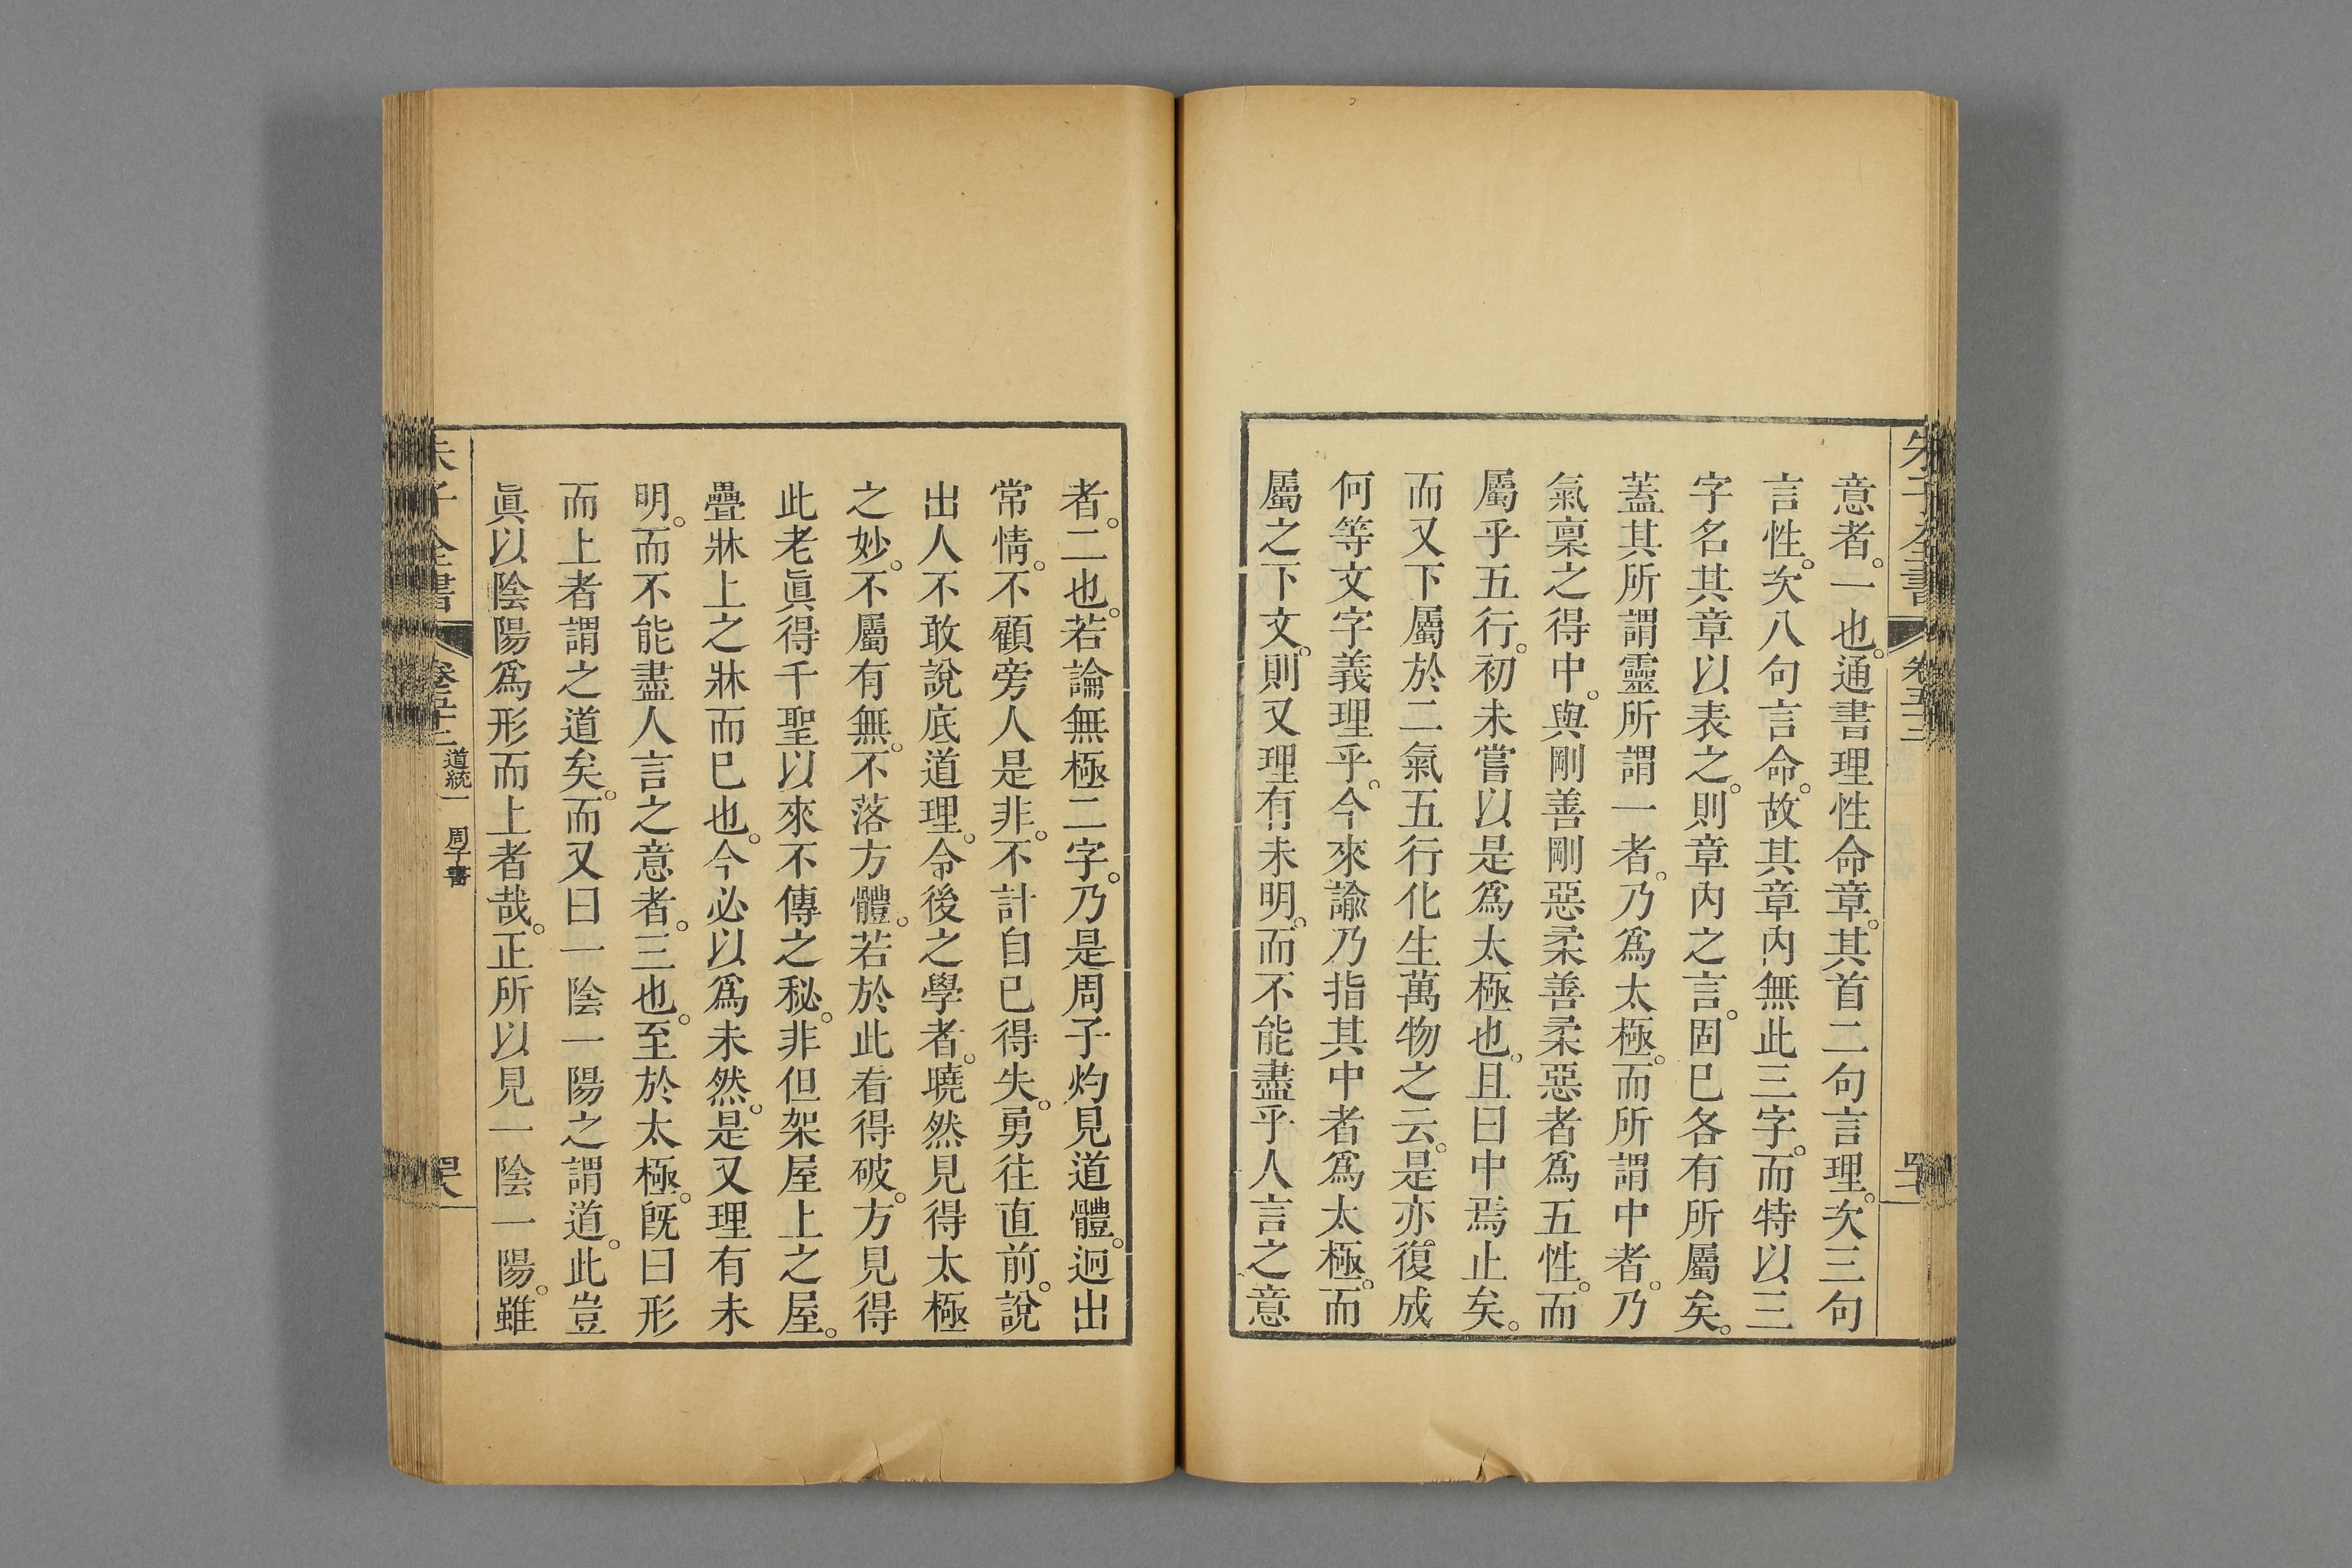 朱子全書
意者。一也。通書理性命章。其首二句言理。次三句
言性。次八句言命。故其章內無此三字。而特以三
字名其章以表之。則章內之言。固已各有所屬矣。
蓋其所謂靈所謂一者。乃爲太極。而所謂中者。乃
氣稟之得中。與剛善剛惡柔善柔惡者爲五性。而
屬乎五行。初未嘗以是爲太極也。且曰中焉止矣。
而又下屬於二氣五行化生萬物之云。是亦復成
何等文字義理乎。今來諭乃指其中者爲太極。而
屬之下文。則又理有未明。而不能盡乎人言之意
者。二也。若論無極二字。乃是周子灼見道體。迥出
常情。不顧旁人是非。不計自己得失。勇往直前。說
出人不敢說底道理。令後之學者。曉然見得太極
之妙。不屬有無。不落方體。若於此看得破。方見得
此老眞得千聖以來不傳之秘。非但架屋上之屋。
疊牀上之牀而已也。今必以爲未然。是又理有未
明。而不能盡人言之意者。三也。至於太極。旣曰形
而上者謂之道矣。而又曰一陰一陽之謂道。此豈
眞以陰陽爲形而上者哉。正所以見一陰一陽。雖
朱子全書
道統一 周子書